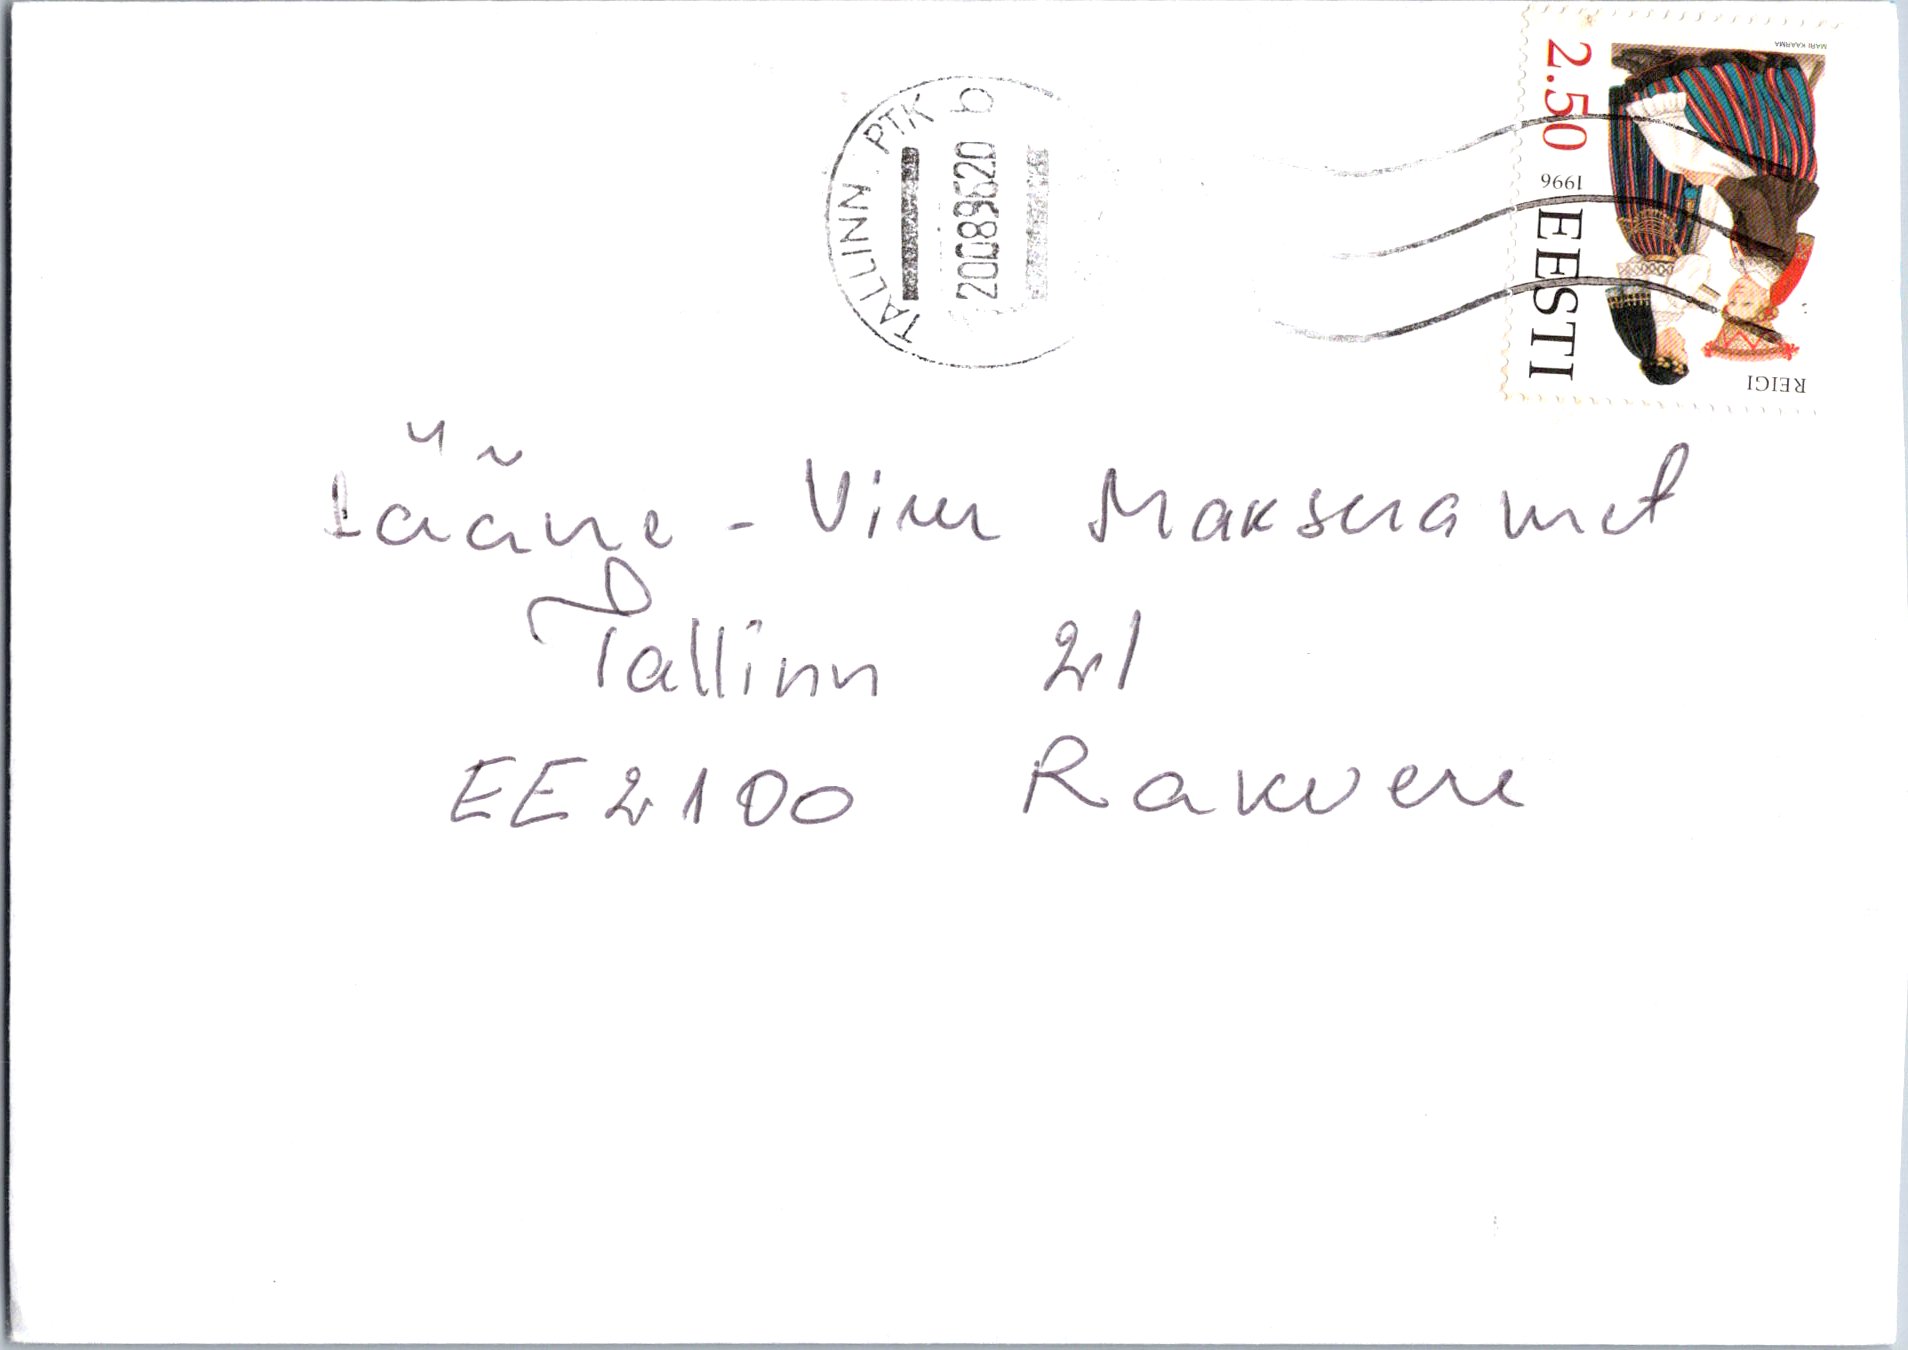 TALLINN PTK
b
20089620
2.50
1996
EESTI
MARI KAARMA
REIGI
Lääne - Viru Maksuamet
Tallinn 21
EE2100 Rakvere